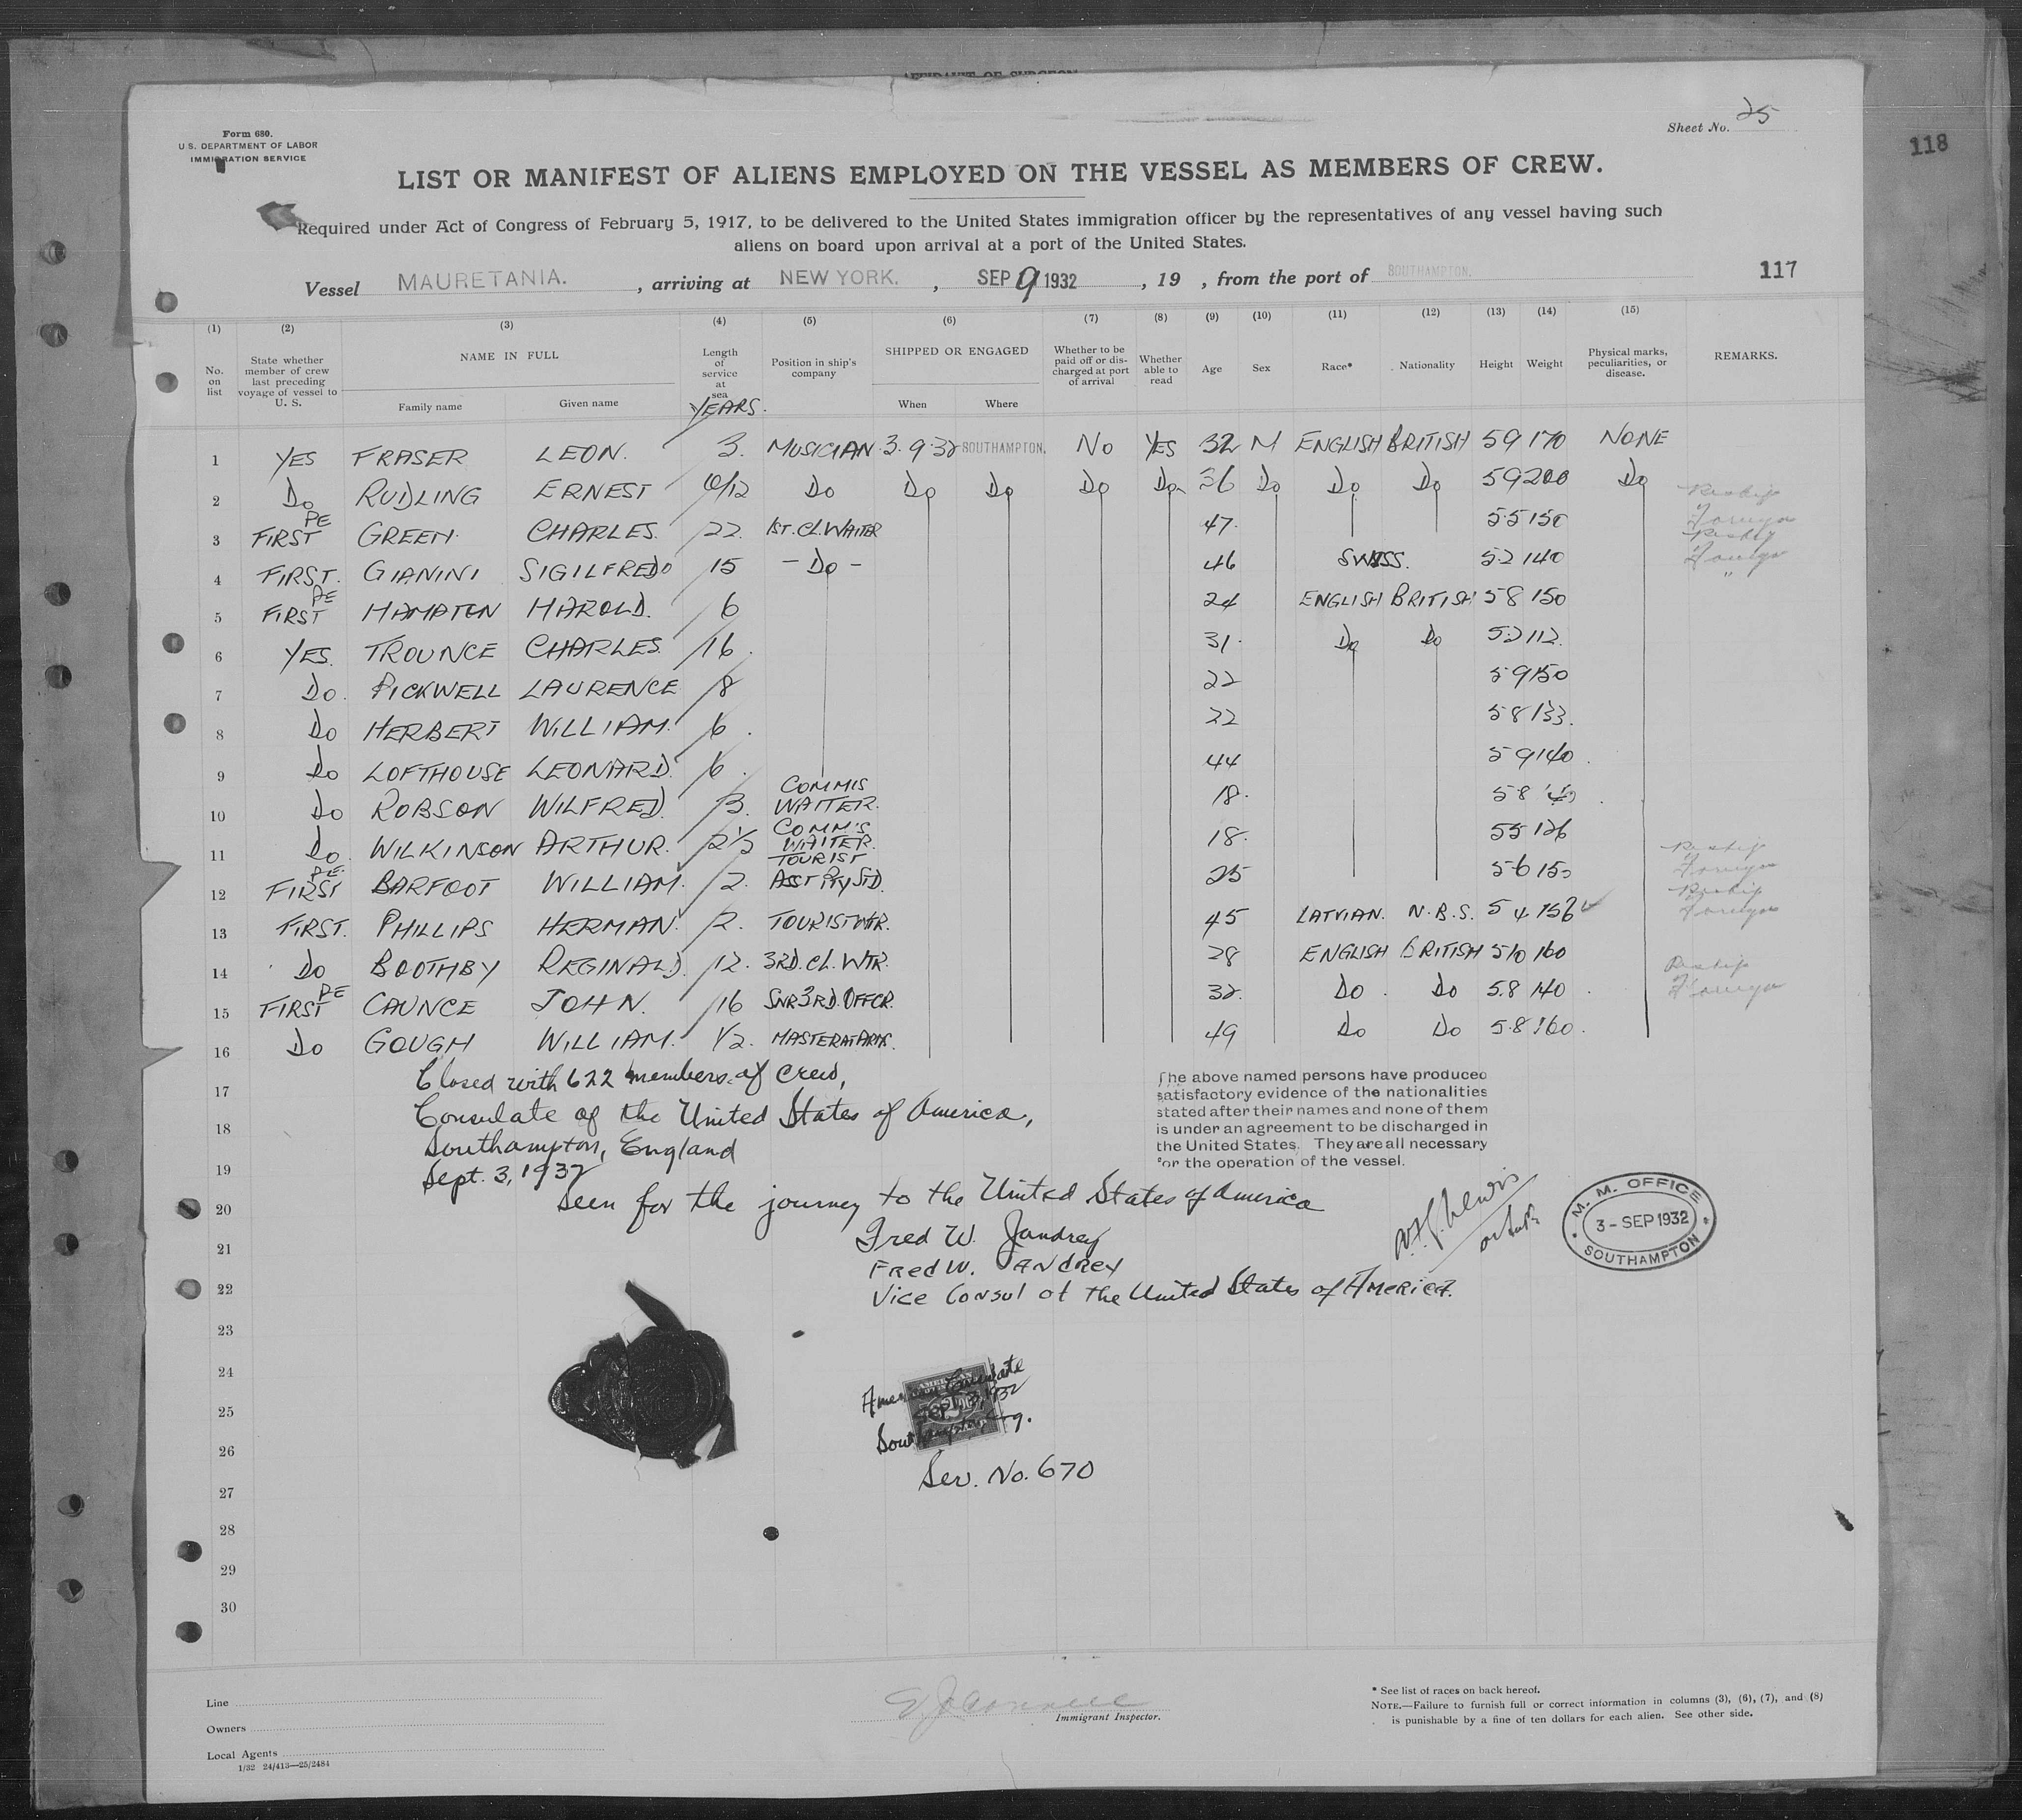 Form 680.
U.S. DEPARTMENT OF LABOR
IMMIGRATION SERVICE
Sheet No. 25
118
LIST OR MANIFEST OF ALIENS EMPLOYED ON THE VESSEL AS MEMBERS OF CREW.
Required under Act of Congress of February 5, 1917, to be delivered to the United States immigration officer by the representatives of any vessel having such
aliens on board upon arrival at a port of the United States.
Vessel MAURETANIA. , arriving at NEW YORK. , SEP 9 1932 , 19 , from the port of SOUTHAMPTON. 117
(1) (2) (3) (4) (5) (6) (7) (8) (9) (10) (11) (12) (13) (14) (15)
No. on list State whether member of crew last preceding voyage of vessel to U. S. NAME IN FULL Family name Given name Length of service at sea YEARS. Position in ship's company SHIPPED OR ENGAGED When Where Whether to be paid off or discharged at port of arrival Whether able to read Age Sex Race* Nationality Height Weight Physical marks, peculiarities, or disease. REMARKS.
1 YES FRASER LEON. 3. MUSICIAN 3.9.32 SOUTHAMPTON. NO YES 32 M ENGLISH BRITISH 59 170 NONE
2 DO RUDLING ERNEST DO DO DO DO DO 36 DO DO DO 59 200 DO
3 FIRST PE GREEN CHARLES. 22. 1ST.CL.WAITER 47. 55 150
4 FIRST. GIANINI SIGILFREDO 15 - DO - 46 SWISS. 52 140
5 FIRST PE HAMPTON HAROLD. 6 24 ENGLISH BRITISH 58 150
6 YES. TROUNCE CHARLES. 16. 31. DO DO 52 112.
7 DO. PICKWELL LAURENCE 8 22 59 150
8 DO HERBERT WILLIAM. 6. 22 58 133.
9 DO LOFTHOUSE LEONARD. 6. 44 59 140.
10 DO ROBSON WILFRED. 3. COMMIS WAITER. 18. 58
11 DO. WILKINSON ARTHUR. 2½ COMMIS WAITER. 18. 55 126
12 FIRST PE. BARFOOT WILLIAM. 2. TOURIST ASST PY STD. 25 56 150
13 FIRST. PHILLIPS HERMAN. 2. TOURIST WTR. 45 LATVIAN. N.B.S. 54 156
14 DO BOOTHBY REGINALD. 12. 3RD.CL.WTR. 28 ENGLISH BRITISH 510 160
15 FIRST PE CAUNCE JOHN. 16 SNR 3RD.OFFCR. 32. DO. DO 5.8 140.
16 DO GOUGH WILLIAM. 1/2. MASTER AT ARMS. 49 DO DO 5.8 160.
17 Closed with 622 members of crew,
18 Consulate of the United States of America,
Southampton, England
19 Sept. 3, 1932
The above named persons have produced
satisfactory evidence of the nationalities
stated after their names and none of them
is under an agreement to be discharged in
the United States. They are all necessary
for the operation of the vessel.
20 Seen for the journey to the United States of America
21 Fred W. Jandrey
FRED W. JANDREY
22 Vice Consul of the United States of America.
M. M. OFFICE
3-SEP 1932
SOUTHAMPTON
23
24
American Consulate
25 Sept. 3, 1932
Southampton, Eng.
26
Serv. No. 670
27
28
29
30
Line
Owners
Local Agents
1/32 24/413—25/2484
Immigrant Inspector.
* See list of races on back hereof.
NOTE.—Failure to furnish full or correct information in columns (3), (6), (7), and (8)
is punishable by a fine of ten dollars for each alien. See other side.